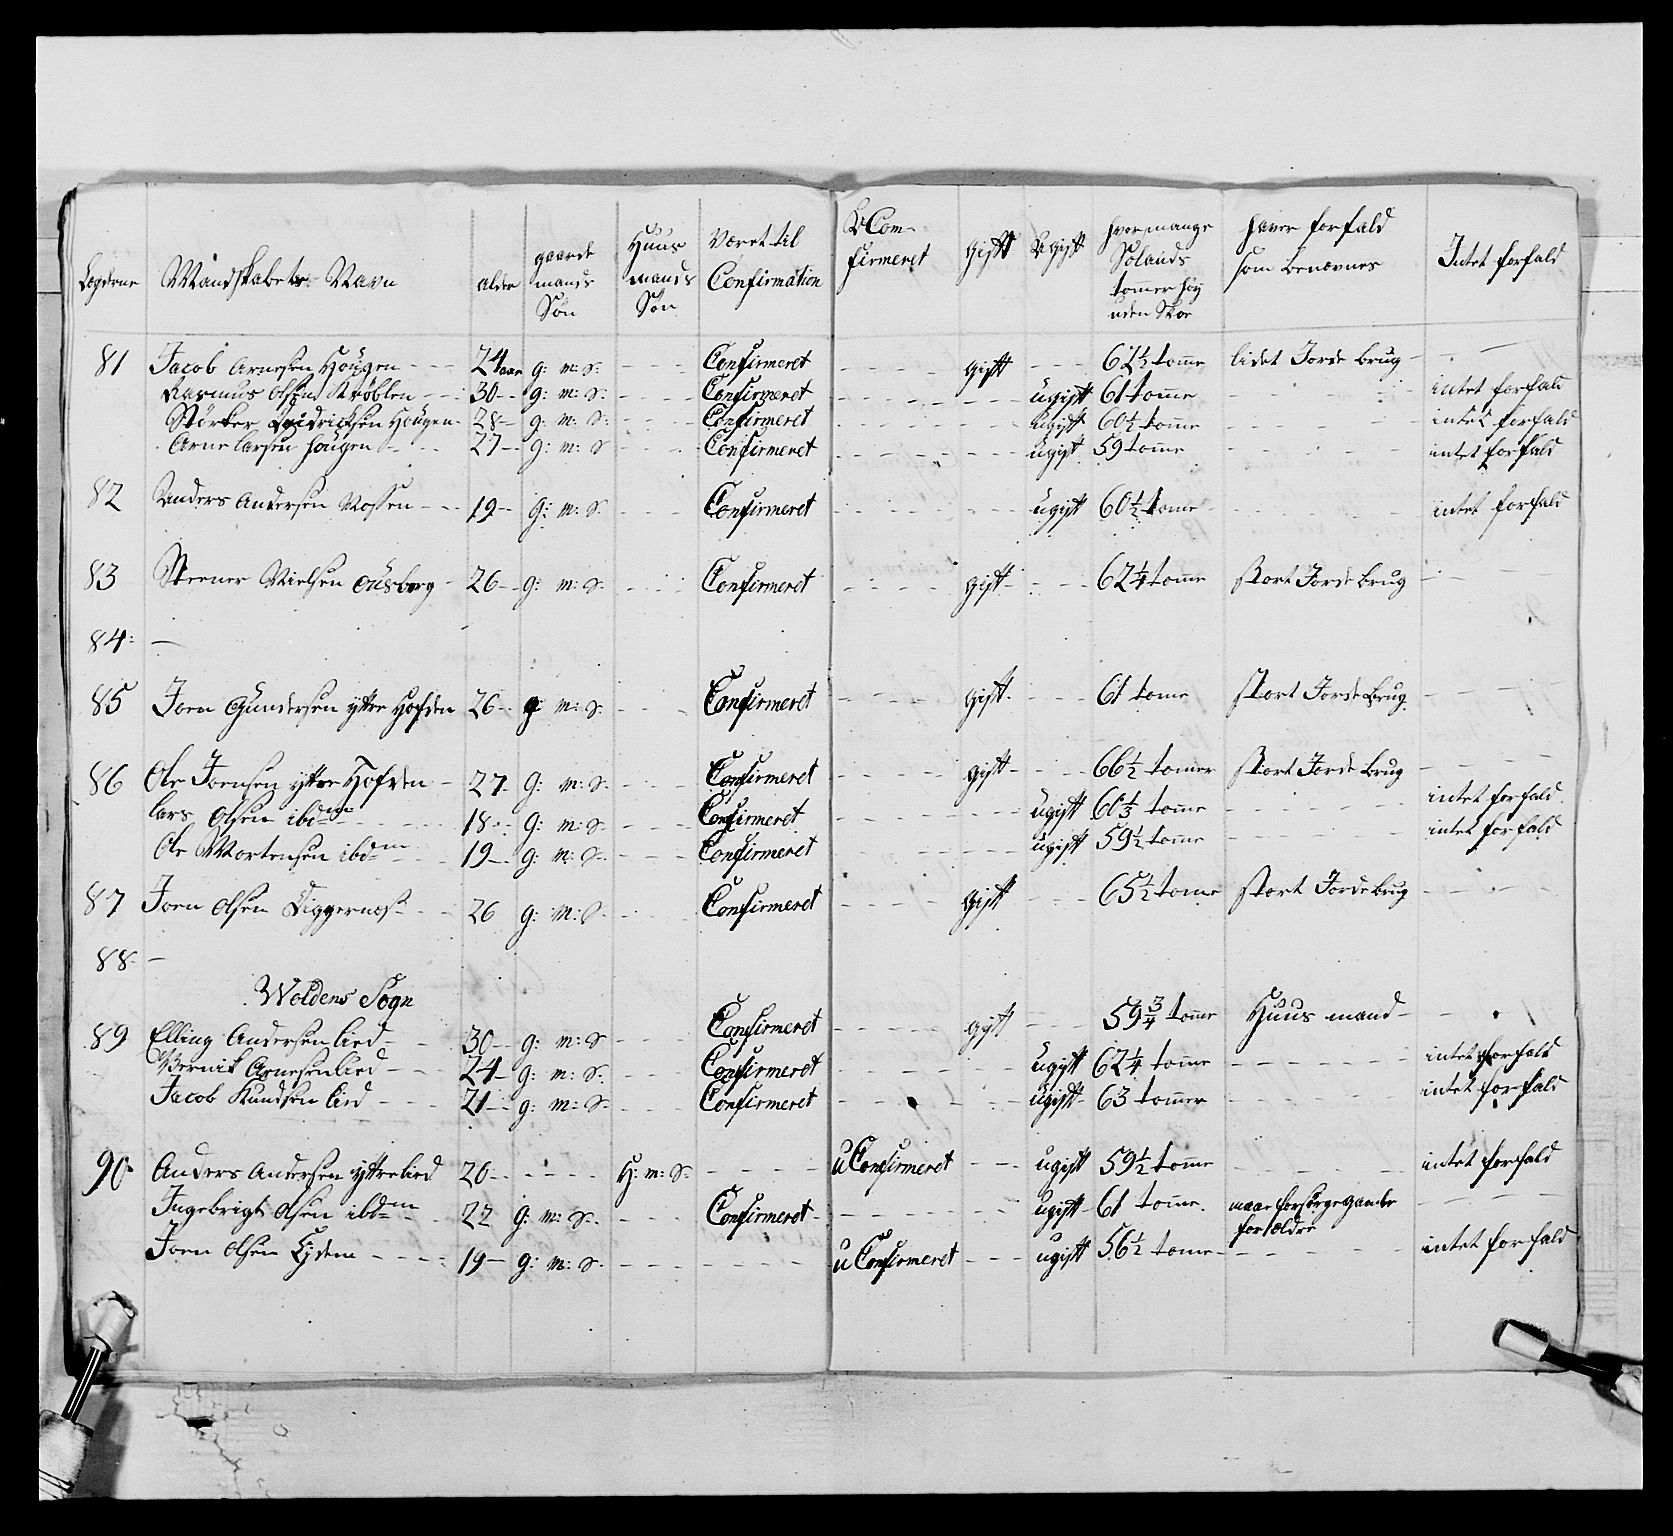 Lægderne | Mandskabets Navn | alder | gaardmands Søn | Huusmands Søn | Været til Confirmation | UComfirmeret | gift | Ugift | hvor mange Sølands tommer høy uden Skoe | haver forfald som benævnes | Intet forfald
81 Jacob Arnesen Hougen - - 24 aar g: m: S: - - - Confirmeret - - - - gift - - - 62½ tomme lidet Jorde brug - - -
Rasmus Olsen - - 30 - g: m: S: - - - Confirmeret - - - - ugift 61 tomme - - - intet forfald
Størker Hougen - 28 - g: m: S: - - - Confirmeret - - - - ugift 60½ tomme - - - intet forfald
Arne Larsen Hougen - - 27 - g: m: S - - - Confirmeret - - - - ugift 59 tomme - - - intet forfald
82 Anders Andersen Mossen - - 19 - g: m: S. - - - Confirmeret - - - - ugift 60½ tomme - - - intet forfald
83 Steener Nielsen - 26 - g: m: S. - - - Confirmeret - - - - gift - - - 62¼ tomme stort Jorde brug - - -
84: -
85 Joen Gundersen yttre Hofden 26 - g m: S. - - - Confirmeret - - - - gift - - - 61 tome stort Jorde brug - - -
86 Ole Joensen yttre Hofden - 27 - g: m: S. - - - Confirmeret - - - - gift - - - 66½ tomer stort Jorde brug - - -
Lars Olsen ibdm - - 18 - g: m: S. - - - Confirmeret - - - - ugift 60⅓ tomme - - - intet forfald
Ole Mortensen ibdm - - 19 - g: m: S. - - - Confirmeret - - - - ugift 59½ tomme - - - intet forfald
87 Joen Olsen - - 26 g: m: S. - - - Confirmeret - - - - gift - - - 65½ tome stort Jorde brug - - -
88 -
Woldens Sogn
89 Elling Andersen Lied - - 30 - g: m: S - - - Confirmeret - - - - gift - - - 59¾ tomme Huus mand - - -
Arnesen Lied - - 24 - g: m: S. - - - Confirmeret - - - - ugift 62¼ tomme - - - intet forfald
Jacob Knudsen Lied - - 21 - g: m: S. - - - Confirmeret - - - - ugift 63 tommer - - - intet forfald
90 Anders Andersen yttrelied 20 - - - - H: m: S. - - - uConfirmeret - - - ugift 59½ tomme - - - intet forfald
Ingebrigt Olsen ibdm - - 22 g: m: S. - - - Confirmeret - - - - ugift 61 tomme maae forsørge gamle forældre - - -
Joen Olsen - - - 19 - g: m: S. - - - - - - uConfirmeret - - - ugift 56½ tome - - - intet forfald